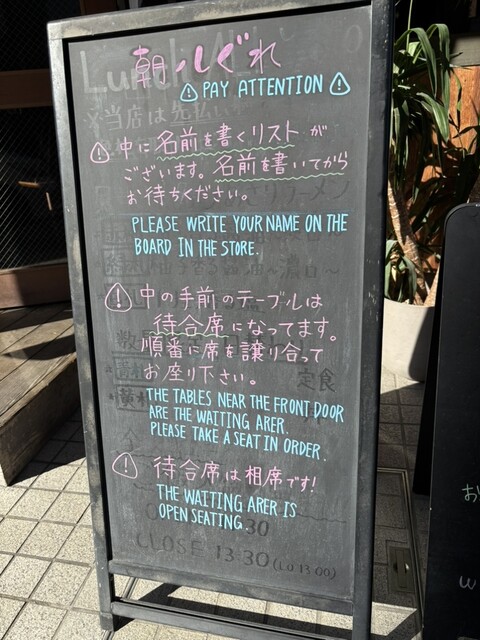 朝ノしぐれ
⚠ PAY ATTENTION ⚠
⚠ 中に名前を書くリストが
ございます。名前を書いてから
お待ちください。
PLEASE WRITE YOUR NAME ON THE
BOARD IN THE STORE.
⚠ 中の手前のテーブルは
待合席になってます。
順番に席を譲り合って
お座り下さい。
THE TABLES NEAR THE FRONT DOOR
ARE THE WAITING ARER.
PLEASE TAKE A SEAT IN ORDER.
⚠ 待合席は相席です!
THE WAITING ARER IS
OPEN SEATING.
CLOSE 13:30 (LO 13:00)